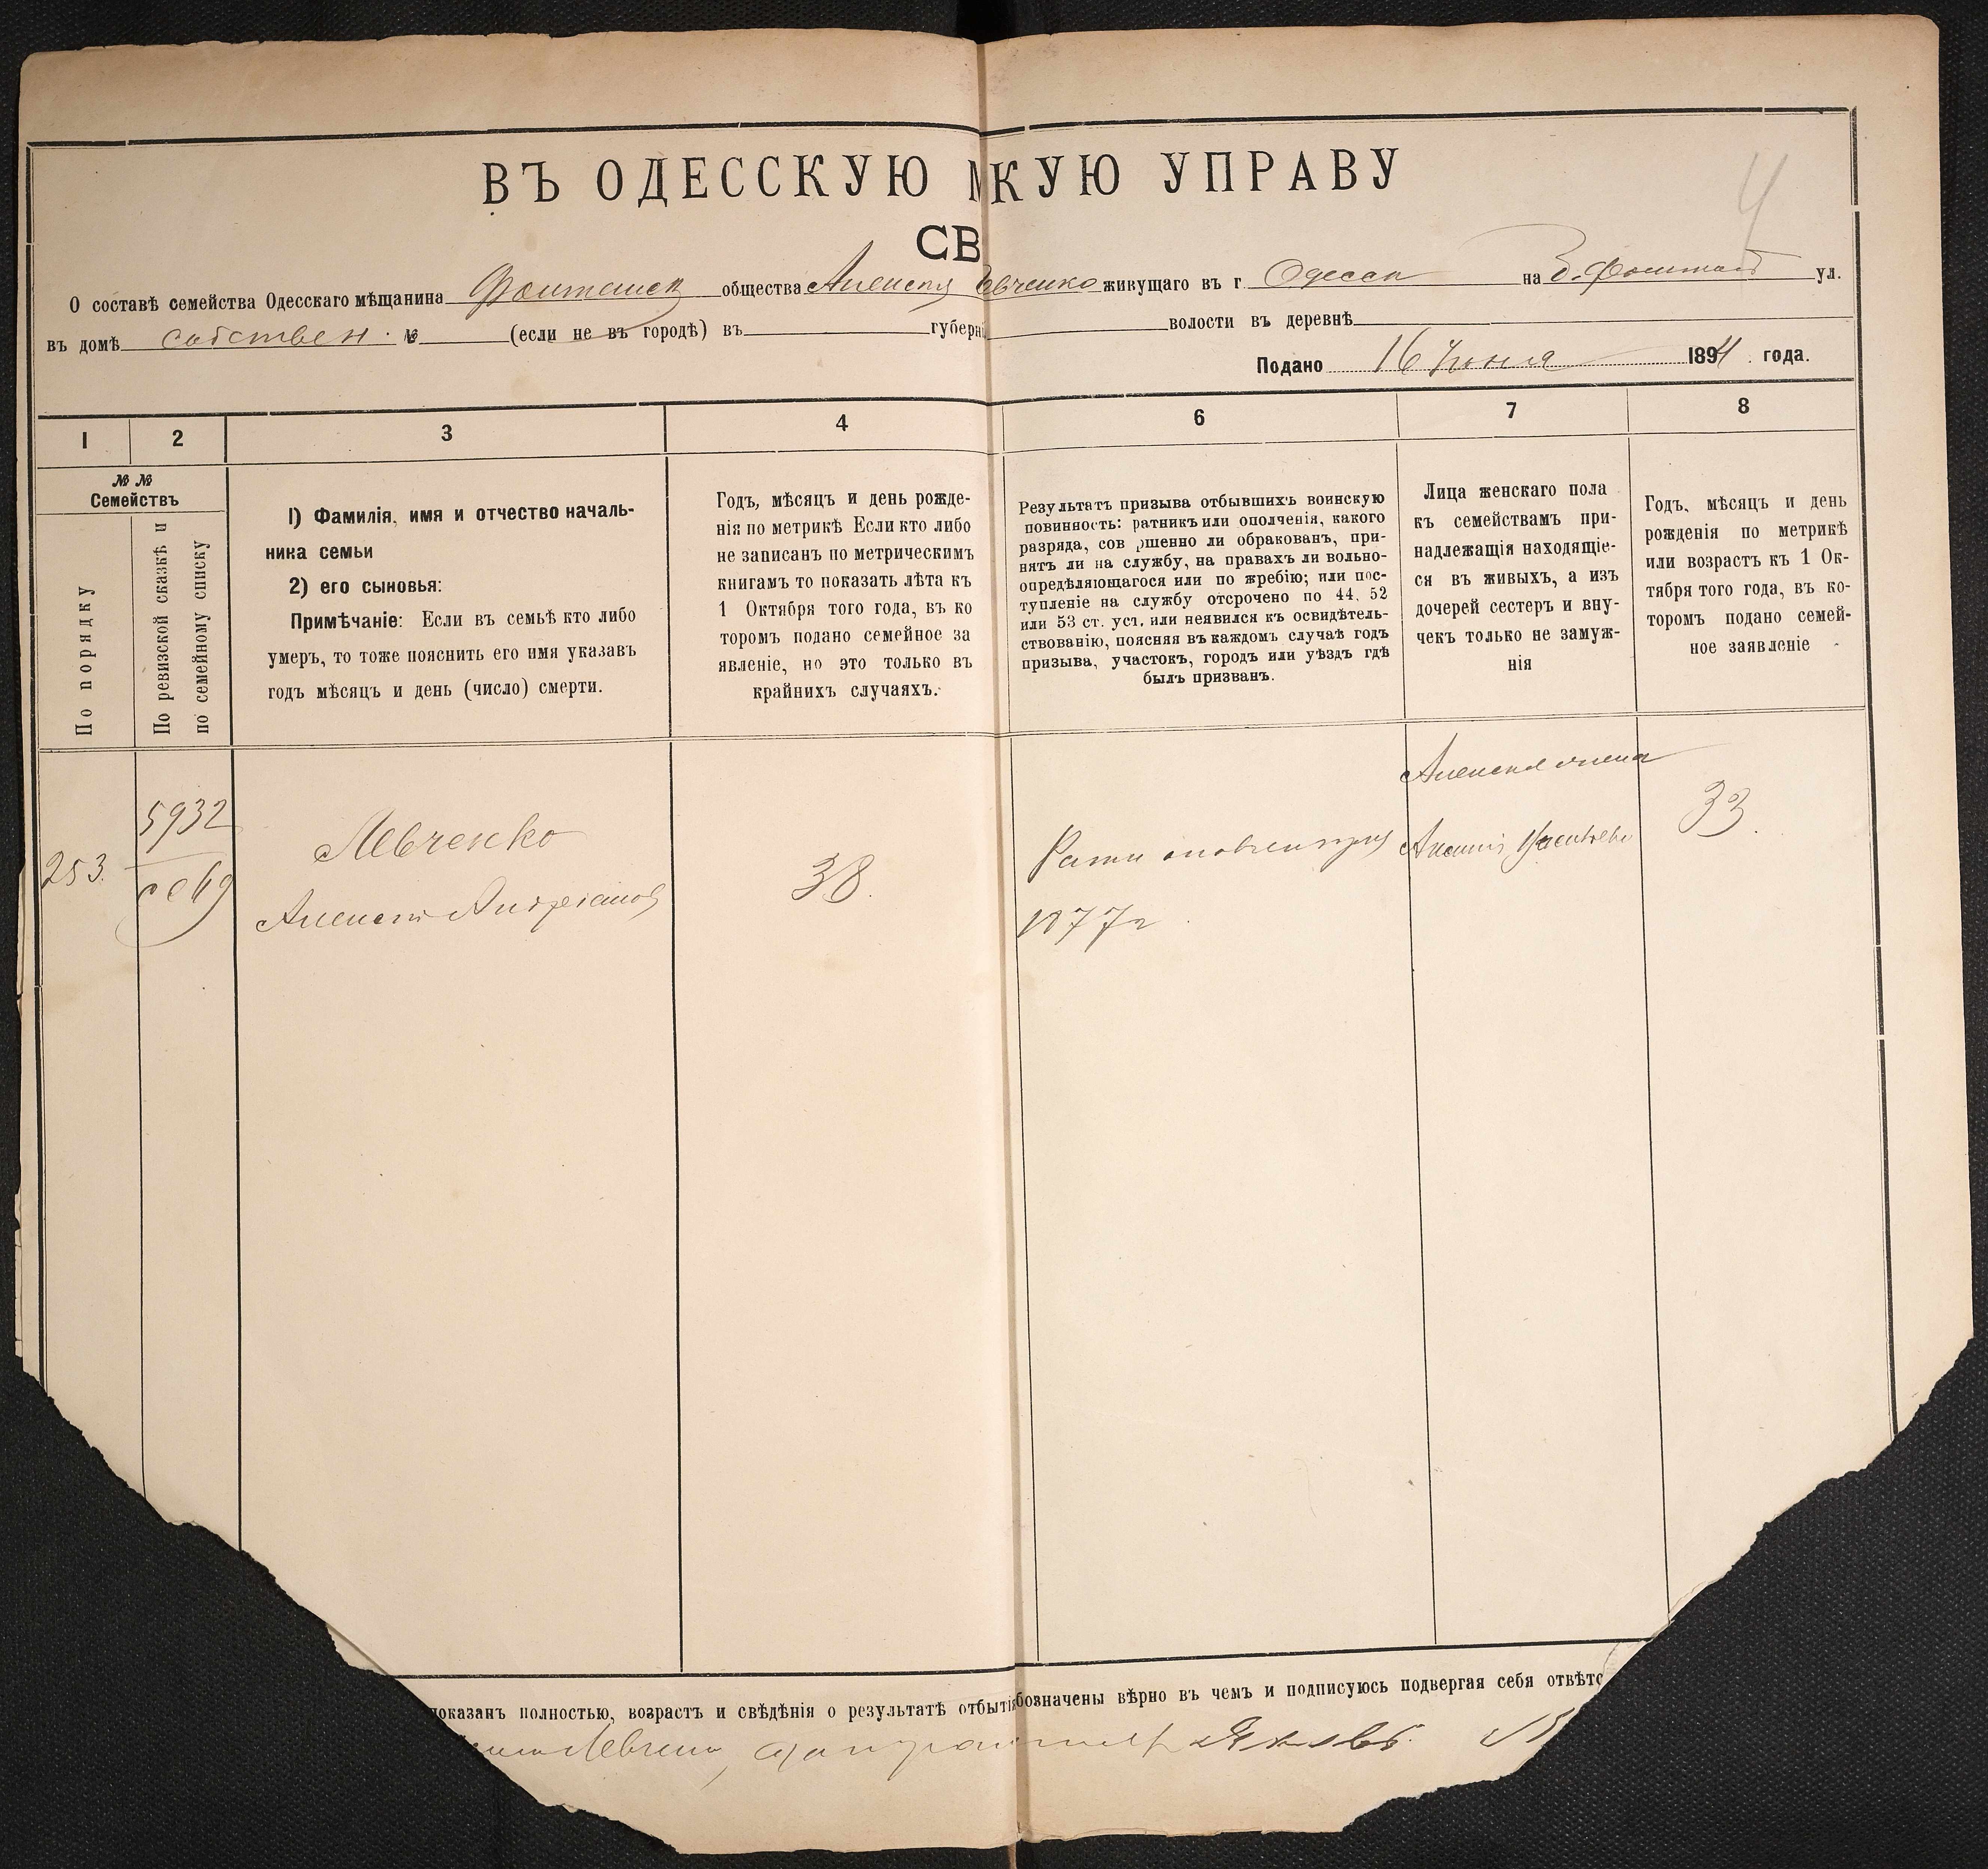 ВЪ ОДЕССКУЮ М КУЮ УПРАВУ
4
СВ
О составѣ семейства Одесскаго мѣщанина Фонтанск общества Алексѣя евченко живущаго въ г. Одессе на Б. Фонтан ул.
въ домѣ собствен. № (если не въ городѣ) въ губерні волости въ деревнѣ
Подано 16 Июня 1894 года.
1 2 3 4 6 7 8
№ №
Семействъ
По порядку
По ревизской сказкѣ и
по семейному списку
1) Фамилія, имя и отчество началь-
ника семьи
2) его сыновья:
Примѣчаніе: Если въ семьѣ кто либо
умеръ, то тоже пояснить его имя указавъ
годъ мѣсяцъ и день (число) смерти.
Годъ, мѣсяцъ и день рожде-
нія по метрикѣ Если кто либо
не записанъ по метрическимъ
книгамъ то показать лѣта къ
1 Октября того года, въ ко
торомъ подано семейное за
явленіе, но это только въ
крайнихъ случаяхъ.
Результатъ призыва отбывшихъ воинскую
повинность: ратникъ или ополченія, какого
разряда, сов ршенно ли обракованъ, при-
нятъ ли на службу, на правахъ ли вольно-
опредѣляющагося или по жребію; или пос-
тупленіе на службу отсрочено по 44. 52
или 53 ст. уст. или неявился къ освидѣтель-
ствованію, поясняя въ каждомъ случаѣ годъ
призыва, участокъ, городъ или уѣздъ гдѣ
былъ призванъ.
Лица женскаго пола
къ семействамъ при-
надлежащія находящіе-
ся въ живыхъ, а изъ
дочерей сестеръ и вну-
чекъ только не замуж-
нія
Годъ, мѣсяцъ и день
рожденія по метрикѣ
или возрастъ къ 1 Ок-
тября того года, въ ко-
торомъ подано семей-
ное заявленіе
253.
5932
Левченко
Алексей
38.
Ратн ополчен
1877г
Алексея жена
33.
показанъ полностью, возрастъ и свѣдѣнія о результатѣ отбытія бозначены вѣрно въ чемъ и подписуюсь подвергая себя отвѣтс
Левченко Яковъ